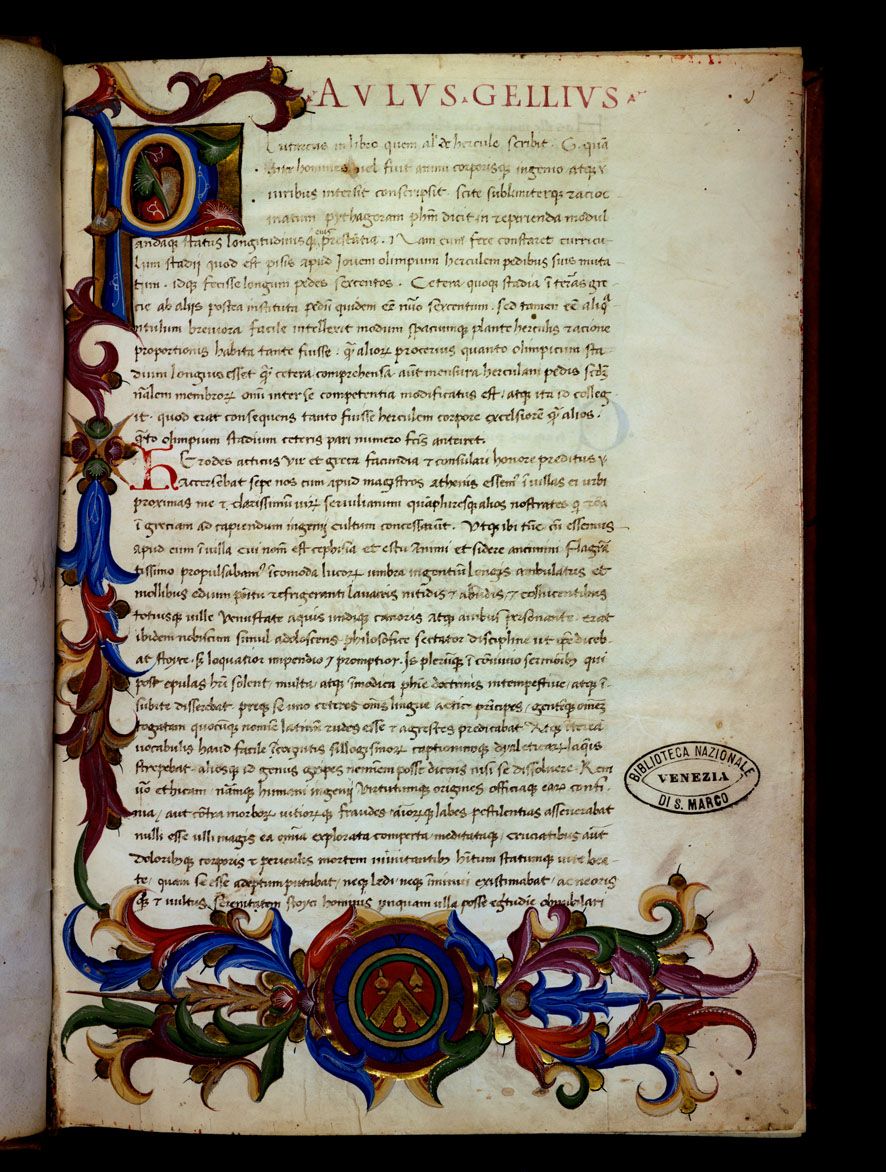 AVLVS GELLIVS
Plutarcus in libro quem de hercule scribit. quā
inter homines fuit animi corporisq ingenio atq
viribus intersit conscripsit. scite subtiliterq racioc
inatum pythagoram phm dicit in reperienda modul
andaq status longitudinis eius prestātia. Nam cum fere constaret curricu
lum stadii quod est pisis apud Jovem olimpium herculem pedibus suis meta
tum. idq fecisse longum pedes sexcentos. Cetera quoq stadia ī terris gre
cie ab aliis postea instituta pedū quidem eē nūo sexcentum. sed tamen eē aliq
ntulum breviora facile intellexit modum spaciumq plante herculis racione
proportionis habita tanto fuisse. q̄ aliorꝝ procerius quanto olimpicum sta-
dium longius esset q̄ cetera comprehensa aūt mensura herculani pedis scdm
nālem membrorꝝ omniū inter se competentia modificatus est. atq ita id colleg
it. quod erat consequens tanto fuisse herculem corpore excelsiorē q̄ alios.
q̄to olimpium stadium ceteris pari numero fcis anteiret.
Herodes acticus vir et greca facundia et consulari honore preditus
Accersebat sepe nos cum apud magistros athenis essemus ī villas ei urbi
proximas me et clarissimū virꝝ servilianum quāpluresq alios nostrates q
ī greciam ad capiendum ingenij cultum concesserāt. Utq ibi tūc cū essemus
apud eum ī villa cui nomē est cephisia et estu Animi et sidere autumni flagrā
tissimo propulsabam īcomoda lucorꝝ umbra ingentiū ambulacris et
mollibus edium positu refrigeranti lavacris nitidis et abūdis et collucentibus
totiusq ville venustate aquis undiq canoris atq avibus personante. erat
ibidem nobiscum simul adolescens philosofice sectator discipline ut ipe diceb
at stoyce. sꝫ loquatior impendio et promptior. Is plerūq ī cōvivio sermōibꝫ qui
post epulas hr̄i solent. multa. atq īmodica phie doctrinis intempestive. atq ī-
subite disserebat preq se uno ceteros oms lingue actice prīcipes. gentēq omnē
togatam quocūq nomīe latinū rudes esse et agrestes predicabat Atq
vocabulis haud facile īcognitis sillogismorꝝ captionumq dyaleticarꝝ laq̄is
strepebat. aliosq id genus gripes neminem posse dicens nisi se dissolvere. Rem
vo ethicam. nāmq humani ingenij virtutumq origines. officiaq earꝝ confi
nia, aut cōtra morborꝝ vitiorꝝq fraudes. aīorꝝq labes pestilentias asseverabat
nulli esse ulli magis ea omīa explorata comperta. meditataq. cruciatibus aūt
doloribꝫq corporis et periculis mortem minitantibꝫ habitum statumq vite bea-
te. quam se esse adeptum putabat. neq ledi. neq īminui existimabat. ac neoris
q̄ et vultus serenitatem stoyci hominis unquam ulla posse egritudīe obnubilari
BIBLIOTECA NAZIONALE
VENEZIA
DI S. MARCO